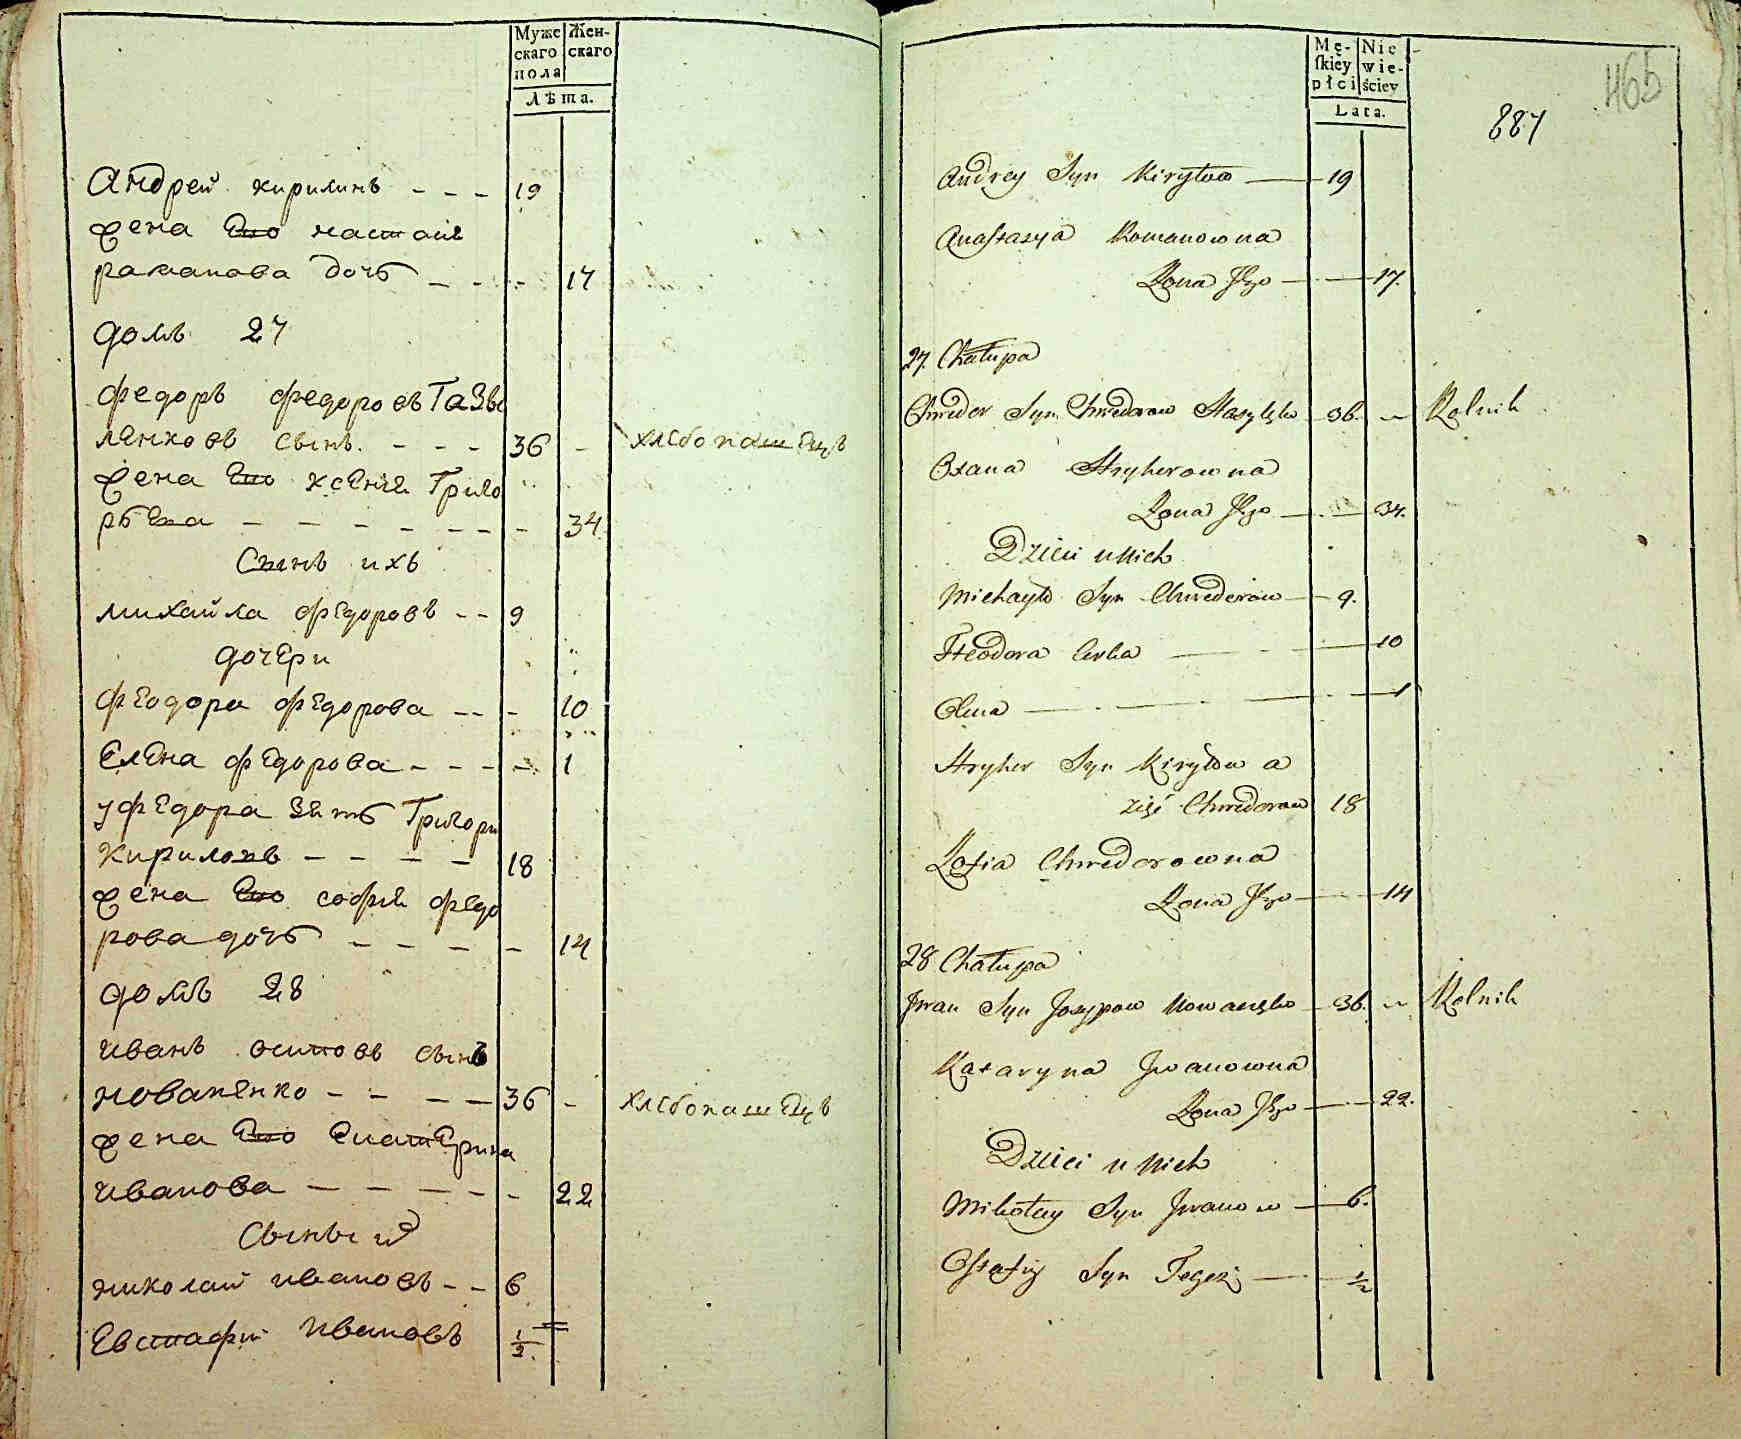 Муже
скаго
пола
Жен-
скаго
Лѣта.
Андрей кирилинъ - - - 19
жена Его настася
раманова дочь - - - 17
домъ 27
федоръ федоровъ Газы
ленковъ сынъ. - - - 36 - хлебопашецъ
жена Его ксения Григо
рьева - - - - - - - 34
Сынъ ихъ
михайла федоровъ - - 9
дочери
феодора федорова - - - 10
Елена федорова - - - - 1
уфедора зять Григори
кириловъ - - - - 18
жена Его софия федо
рова дочь - - - - - 14
домъ 28
иванъ осиповъ сынъ
новаленко - - - - 36 - хлебопашецъ
жена Его Екатерина
иванова - - - - - - 22
Сыны их
николай ивановъ - - 6
Евстафий ивановъ 1/2
Mę-
skiéy
płci
Nie
wie-
ściey
Lata.
465
887
Andrey Syn Kiryłow — 19
Anastazya Romanowna
Zona Jego — — 17.
27. Chałupa
Chwedor Syn Chwedorow Hazylęko 36. — Rolnik
Oxana Hryhorowna
Zona Jego — — 34.
Dzieci u Nich
Michayło Syn Chwedorow — 9.
Fteodora Curka — — 10
Olena — — — 1
Hryhor Syn Kiryłow a
zięć Chwedorow 18
Zofia Chwedorowna
Zona Jego — — 14
28 Chałupa
Jwan Syn Jozypow Nowalęko — 36. — Rolnik
Kataryna Jwanowna
Zona Jego — — 22.
Dzieci u Nich
Mikołay Syn Jwanow — 6.
Ostafiy Syn Tegoż — 1/2